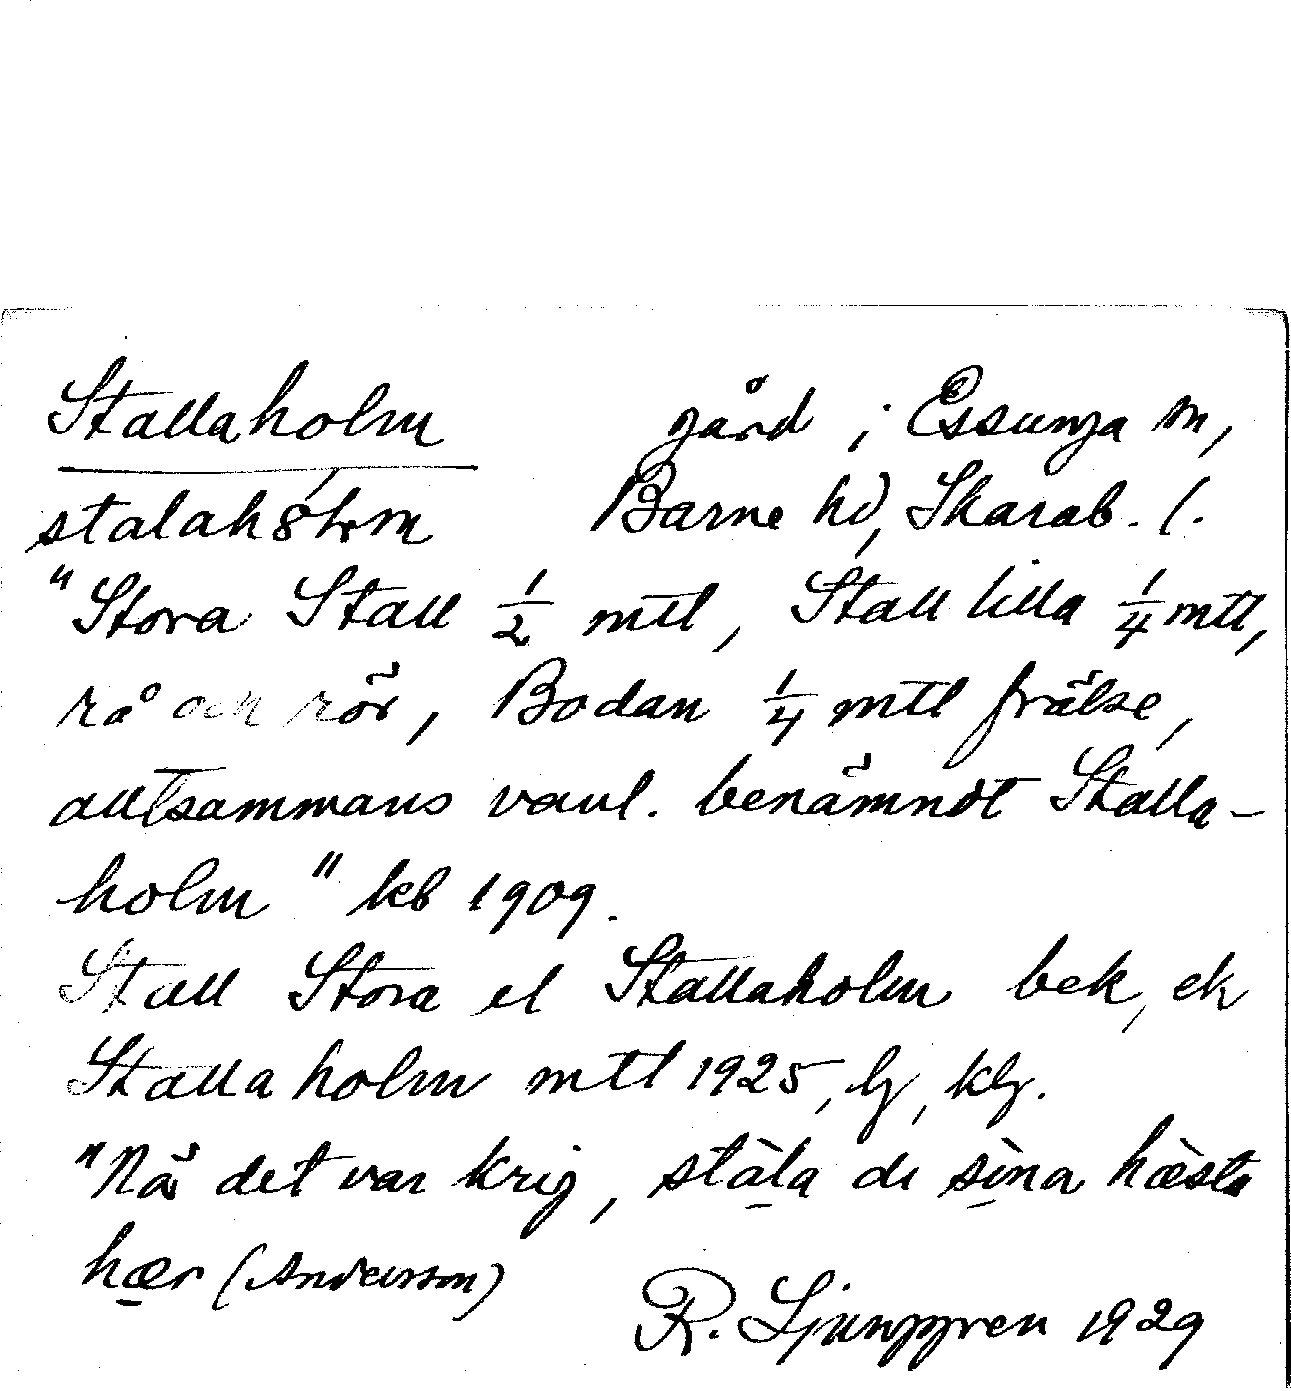 Stallaholm gård i Essunga sn,
stalahȣ́lm Barne hd, Skarab. l.
"Stora Stall 1/2 mtl, Stall lilla 1/4 mtl,
rå och rör, Bodan 1/4 mtl frälse,
alltsammans vanl. benämndt Stalla-
holm" kb 1909.
Stall Stora el Stallaholm bek, ek
Stallaholm mtl 1925, lg, klg.
"När det var krig, stàla di sìna hæsta
hær (Andersson)
R. Ljunggren 1929